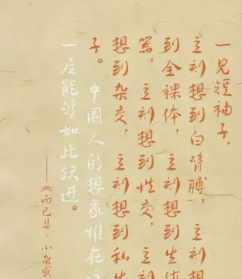 一见短袖子，
立刻想到白臂膊，立刻想
到全裸体，立刻想到生殖
器，立刻想到性交，立刻
想到杂交，立刻想到私生
子。中国人的想象惟在这
一层能够如此跃进。
——《而已集·小杂感